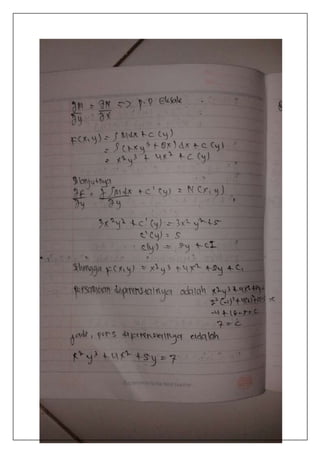 ∂M/∂y = ∂N/∂x => P.D Eksak
F(x,y) = ∫ M dx + c (y)
= ∫ (2xy³ + 8x) dx + c (y)
= x²y³ + 4x² + c (y)
Selanjutnya
∂F/∂y = ∂/∂y ∫ M dx + c' (y) = N (x,y)
3x²y² + c' (y) = 3x²y² + 5
c'(y) = 5
c(y) = 5y + c1
Sehingga F(x,y) = x²y³ + 4x² + 5y + C1
persamaan diperensialnya adalah x²y³ + 4x² + 5y
-4 + 16 - 5 = C
7 = C
jadi, pers diperensialnya adalah
x²y³ + 4x² + 5y = 7